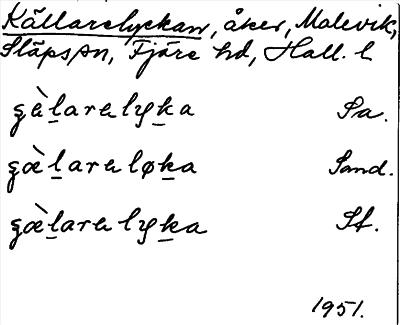 Källarelyckan, åker, Malevik,
Släps sn, Fjäre hd, Hall. l
ʂὲl̲arɐlyk̲a Sa.
ʂæ̀l̲arɐløk̲a Sand.
ʂæ̀l̲arɐlyk̲a Sf.
1951.